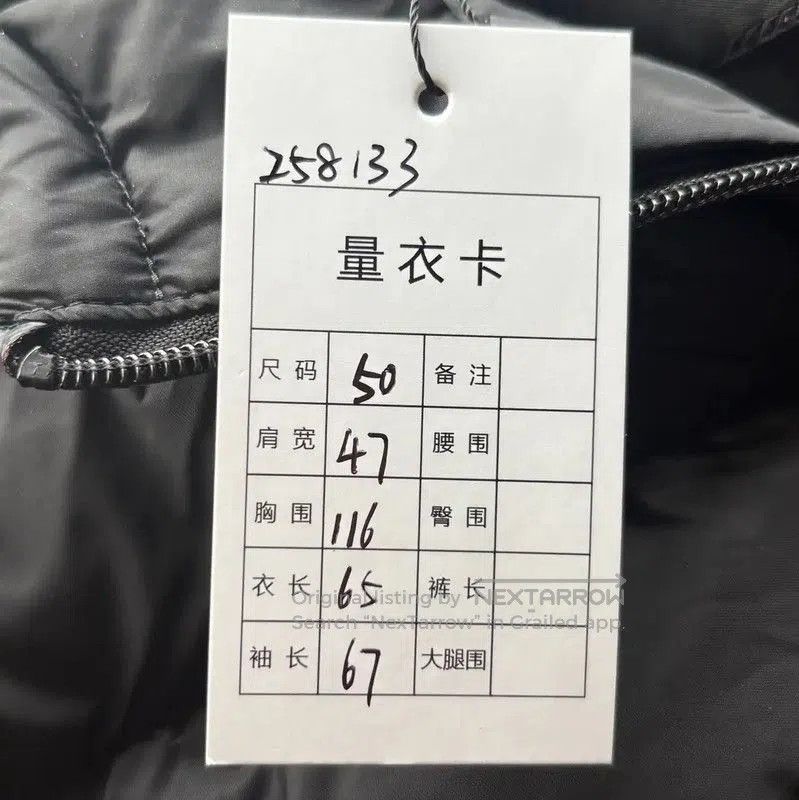 258133
量衣卡
尺码 50 备注
肩宽 47 腰围
胸围 116 臀围
衣长 65 裤长
Original listing by NEXTARROW
Search "NexTarrow" in Grailed app.
袖长 67 大腿围